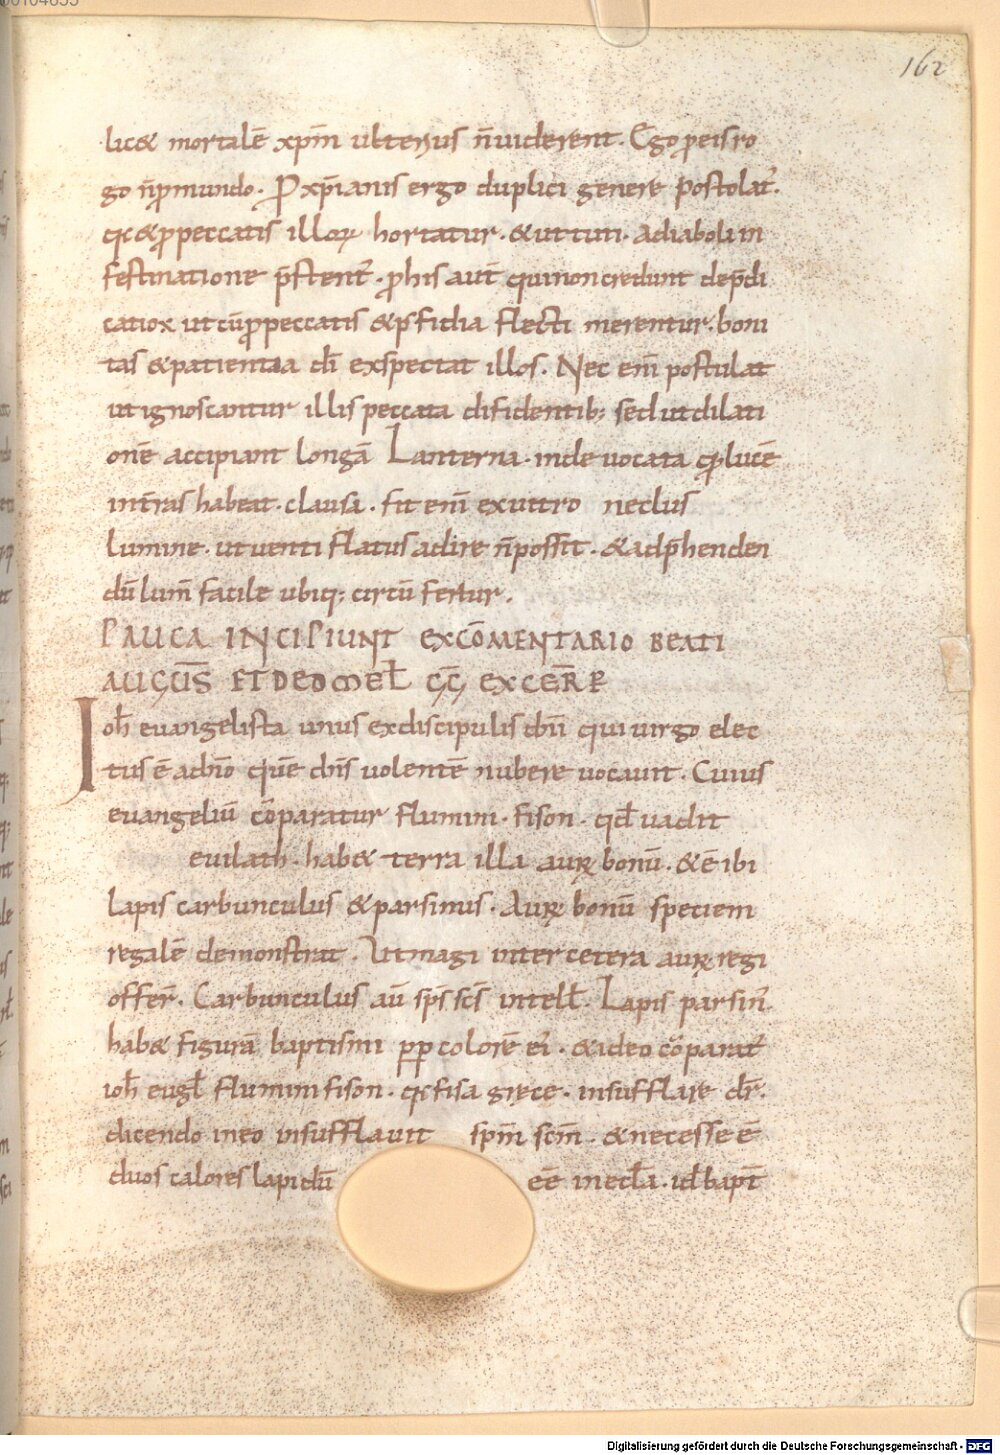 162
licet mortalē xp̄m ulterius n̄ viderent. Ego p eis ro
go n̄ p mundo. P xp̄ianis ergo duplici genere postolat̄.
qt & p peccatis illorꝝ hortatur. & ut tuti. a diaboli in
festinatione p̄stent̄. p his aut̄ qui non credunt dep̄di
catiox ut cū p peccatis & pfidia flecti merentur. boni
tas & patientaa dī exspectat illos. Nec enī postulat
ut ignoscantur illis peccata difidentib; sed ut dilati
onē accipiant longā Lanterna. inde vocata qp lucē
int̄ras habeat. clausa. fit enī ex uitro neclus
lumine. ut venti flatus adire n̄ possit. & adp̄henden
dū lum̄ facile ubiq; circū fertur.
PAUCA INCIPIUNT EX CŌMENTARIO BEATI
AUGUS̄ ET DE OMEL̄ G̅G̅ EXCER̄P
Ioh̄ evangelista unus ex discipulis dn̄i qui virgo elec
tus ē ad n̄o quē dn̄s volentē nubere vocavit. Cuius
evangeliū cōparatur flumini. fison. qd̄ vadit
evilath. hab& terra illa aurꝝ bonū. & ē ibi
lapis carbunculus & parsinus. Aurꝝ bonū speciem
regalē demonstrat. Ut magi inter cetera aurꝝ regi
offer̄. Carbunculus aū sp̄s sc̄s intell̄. Lapis parsin̄.
hab& figurā baptismi pp colorē eī. & ideo cōparat̄
ioh̄ eugl̄ flumini fison. qt fisa gręce. insufflare dr̄.
dicendo in eo insufflavit sp̄m sc̄m. & necesse ē
duos calores lapidū eē in ecl̄a. id bapt̄
Digitalisierung gefördert durch die Deutsche Forschungsgemeinschaft - DFG